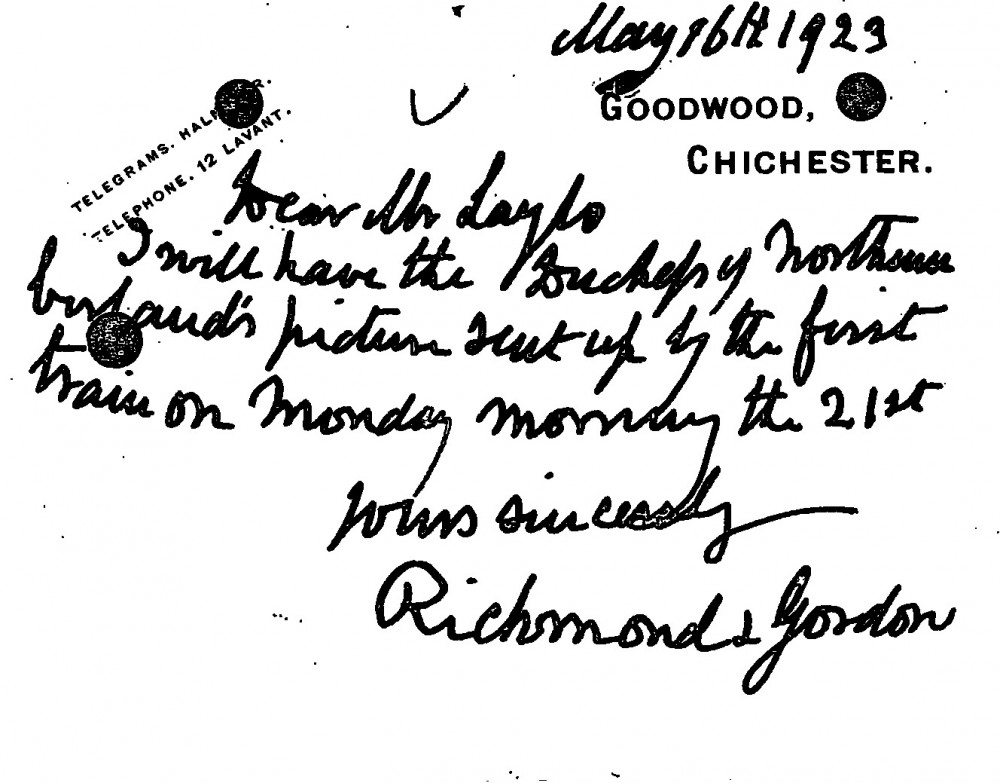 May 16th 1923
GOODWOOD,
CHICHESTER.
TELEGRAMS.
TELEPHONE. 12 LAVANT.
Dear Mr
I will have the Duchess of Northum
berland's picture sent up by the first
train on Monday morning the 21st
Yours sincerely
Richmond & Gordon